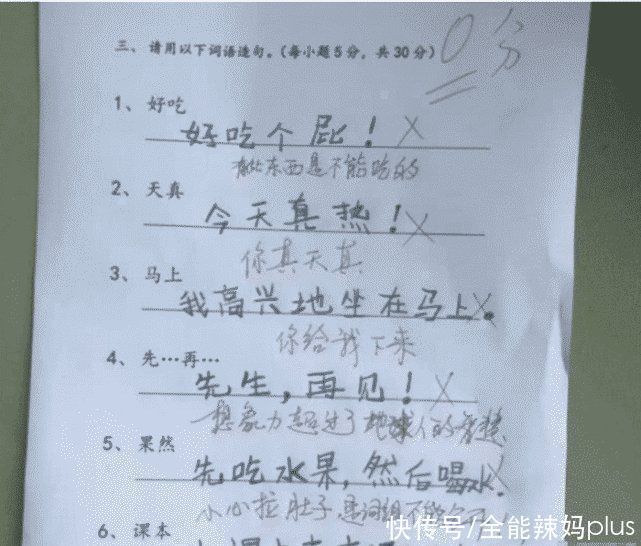 三、请用以下词语造句。(每小题5分，共30分) 0分
1、好吃
好吃个屁！
有些东西是不能吃的
2、天真
今天真热！
你真天真
3、马上
我高兴地坐在马上。
你给我下来
4、先…再…
先生，再见！
想象力超过了地球人的智慧
5、果然
先吃水果，然后喝水.
小心拉肚子 是词组不能分
6、课本
快传号/全能辣妈plus